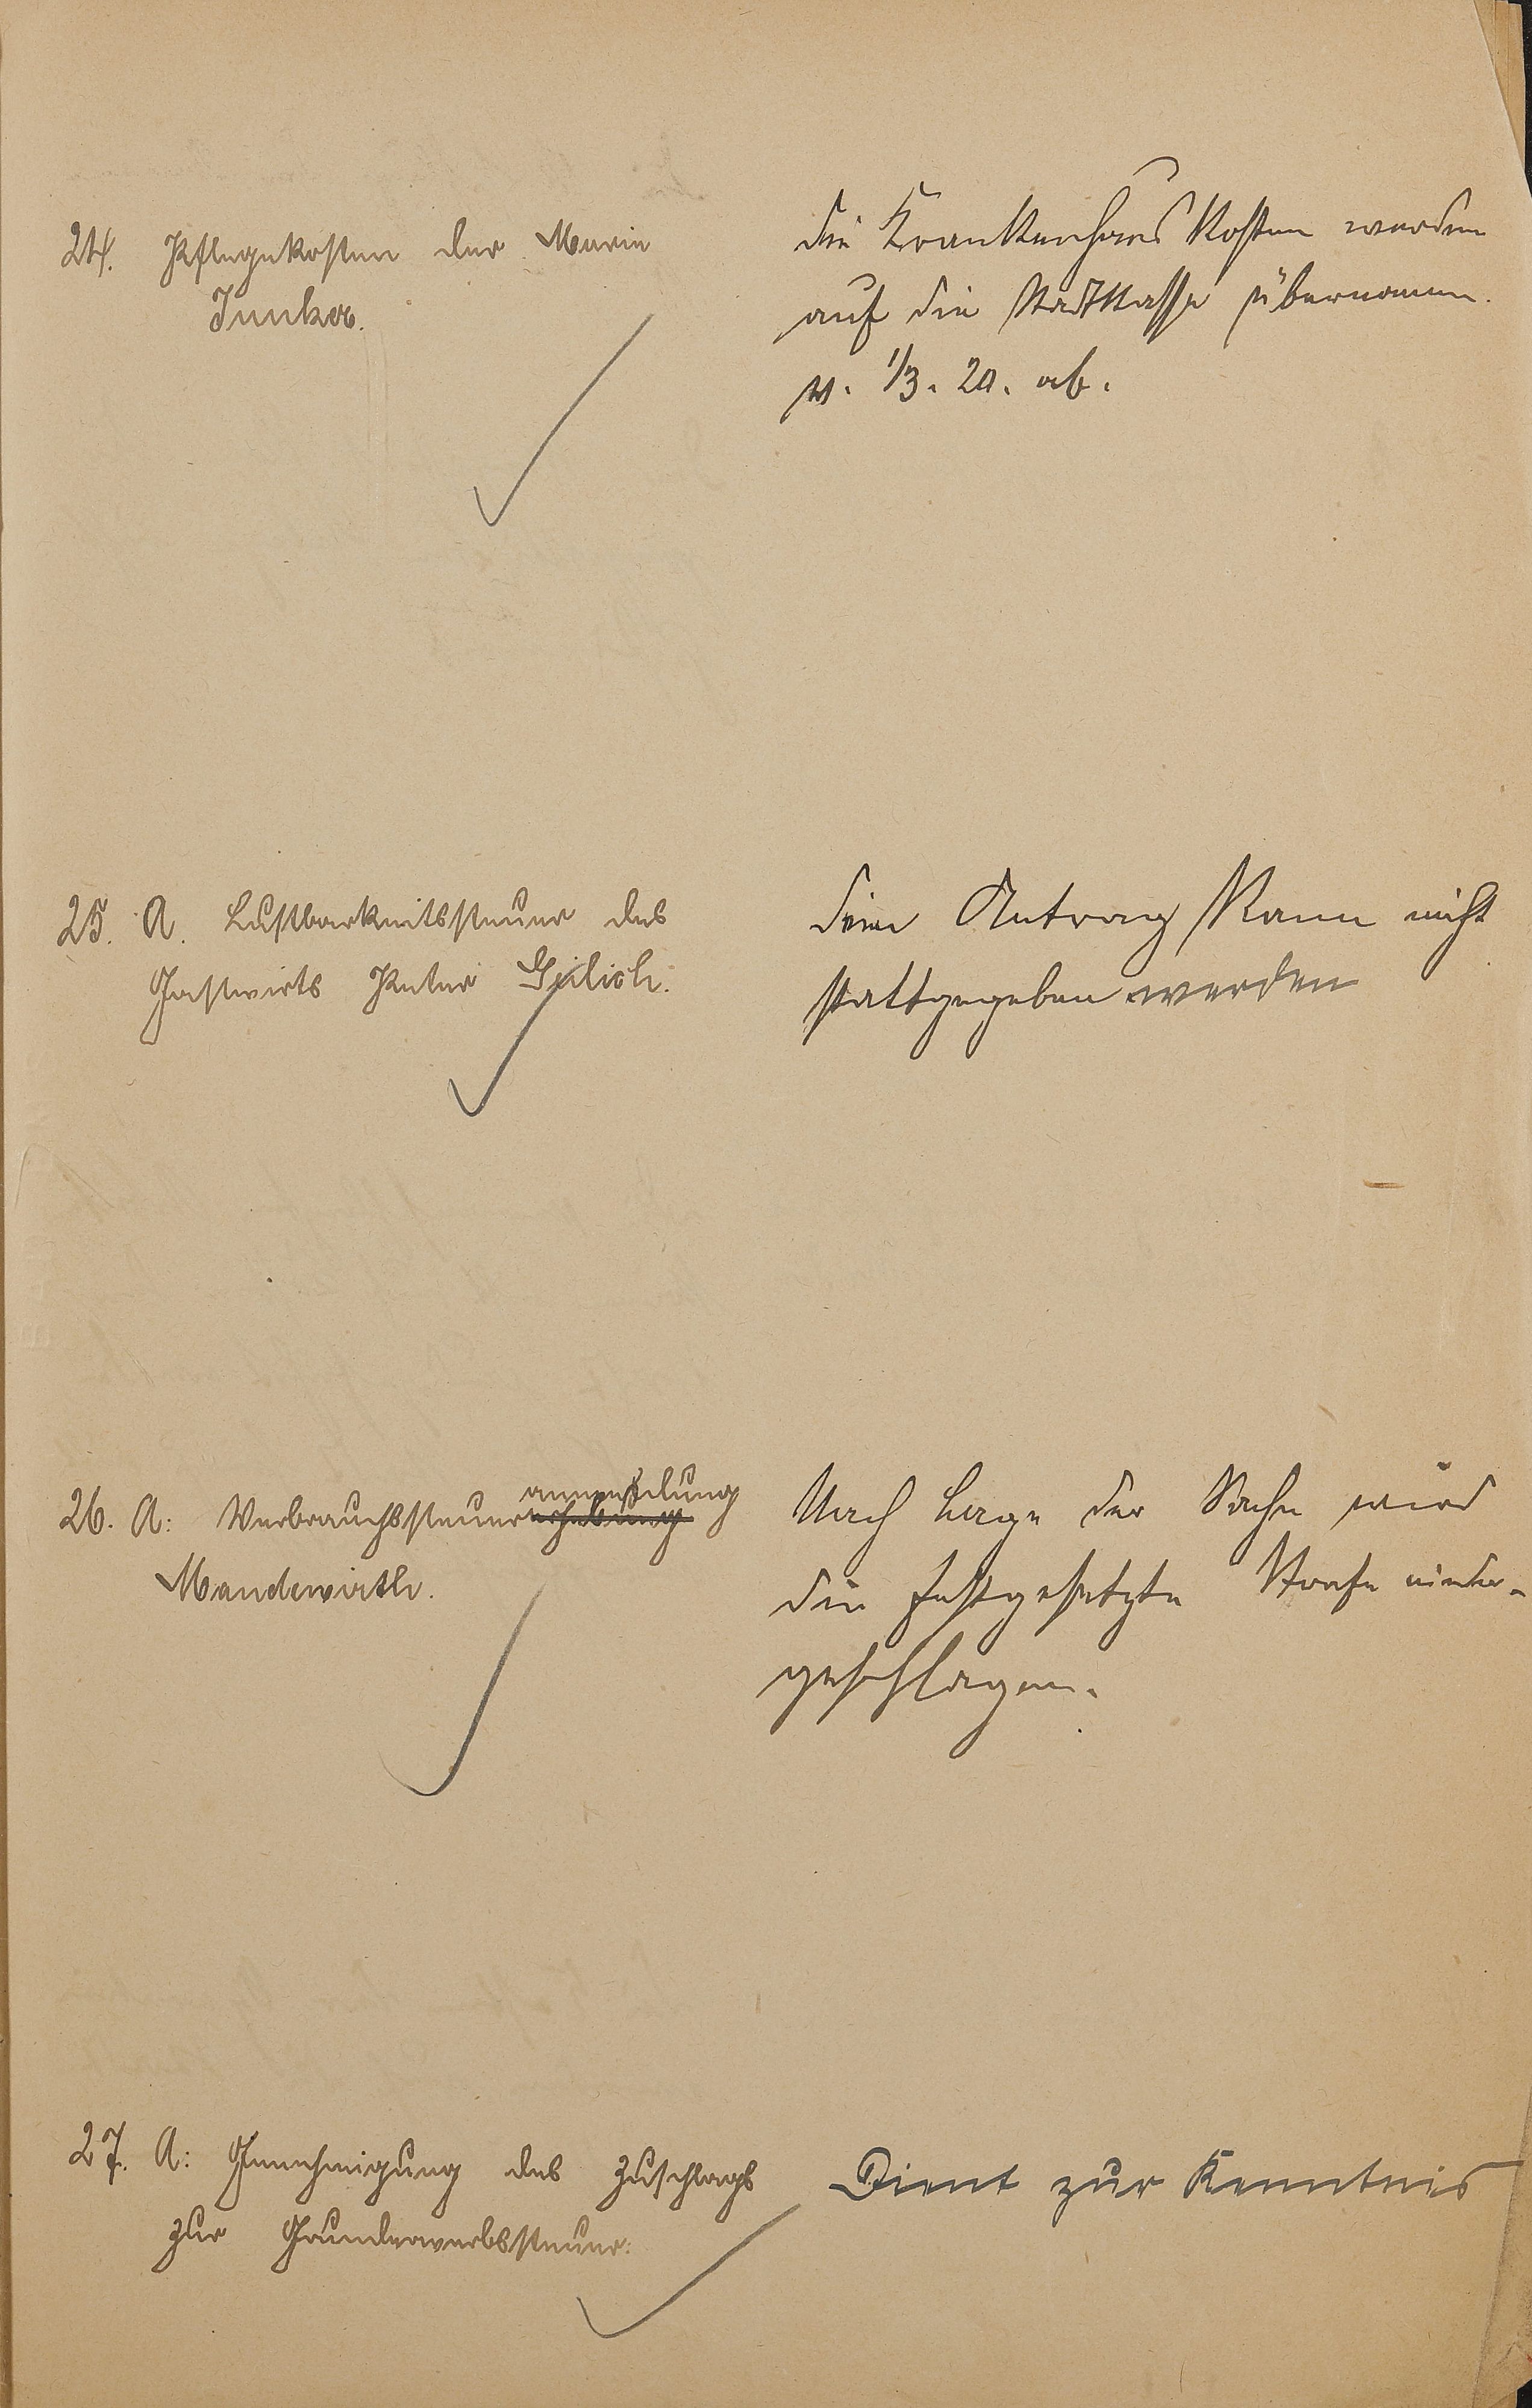 24. Pflegekosten der Marie
Junker.
die Krankenhaus Kosten werden
auf die Stadtkasse übernommen.
v. 1/3. 20. ab.
25. A. Lustbarkeitssteuer des
Gastwirts Peter Geilich.
dem Antrag kann nicht
stattgegeben werden
26. A: Verbrauchssteuererhebung
anmeldung
Mandewirth.
Nach Lage der Sache wird
die festgesetzte Strafe nieder-
geschlagen.
27. A: Genehmigung des Zuschlags
zur Grunderwerbssteuer.
Dient zur Kenntnis